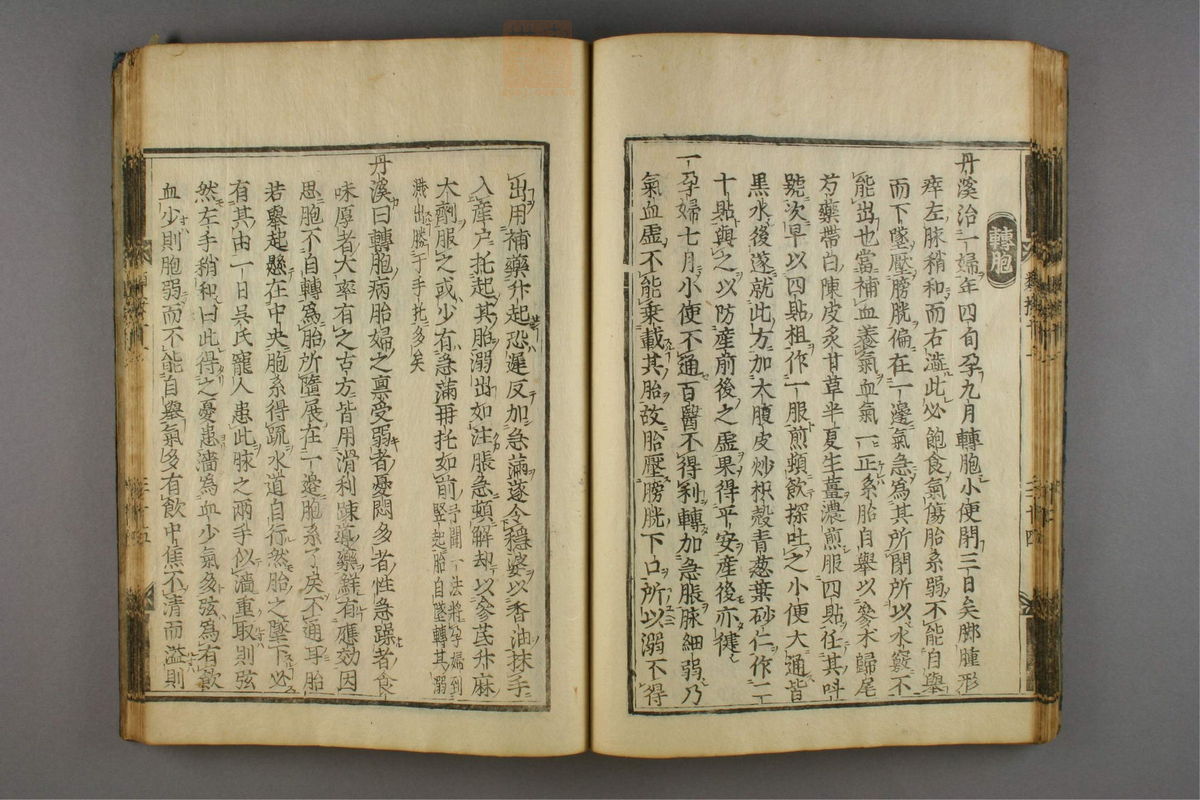 轉胞
丹溪治一婦年四旬孕九月轉胞小便閉三日矣脚腫形
瘁左脉稍和而右濇此必飽食氣傷胎系弱不能自舉
而下墜壓膀胱偏在一邊氣急爲其所閉所以水竅不
能出也當補血養氣血氣一正系胎自舉以參朮歸尾
芍藥帶白陳皮炙甘草半夏生薑濃煎服四貼任其呌
號次早以四貼粗作一服煎頓飲探吐之小便大通皆
黑水後遂就此方加大腹皮炒枳殼青葱葉砂仁作二
十貼與之以防産前後之虛果得平安産後亦健
一孕婦七月小便不通百醫不得利轉加急脹脉細弱乃
氣血虛不能乗載其胎故胎壓膀胱下口所以溺不得
出用補藥升起恐遲反加急滿遂令穩婆以香油抹手
入産户托起其胎溺出如注脹急頓解却以參芪升麻
大劑服之或少有急滿再托如前
一法將孕婦到竪起胎自墜轉其溺
濺出勝于手托多矣
丹溪曰轉胞病胎婦之禀受弱者憂悶多者性急躁者食
味厚者大率有之古方皆用滑利疎導藥鮮有應効因
思胞不自轉爲胎所墮展在一邊胞系了戾不通耳胎
若舉起懸在中央胞系得疏水道自行然胎之墜下必
有其由一日吳氏寵人患此脉之兩手似濇重取則弦
然左手稍和曰此得之憂患濇爲血少氣多弦爲有飮
血少則胞弱而不能自舉氣多有飲中焦不清而溢則